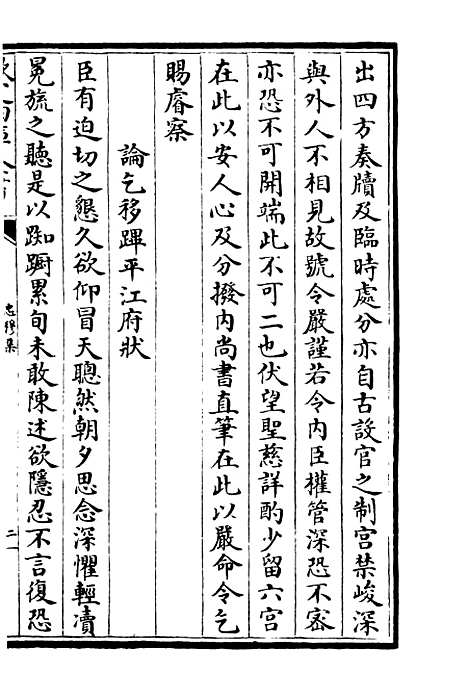 出四方奏牘及臨時處分亦自古設官之制宫禁峻深
與外人不相見故號令嚴謹若令内臣權管深恐不宻
亦恐不可開端此不可二也伏望聖慈詳酌少留六宫
在此以安人心及分撥内尚書直筆在此以嚴命令乞
賜睿察
論乞移蹕平江府狀
臣有迫切之懇久欲仰冒天聰然朝夕思念深懼輕瀆
冕旒之聽是以踟躕累旬未敢陳述欲隱忍不言復恐
忠穆集